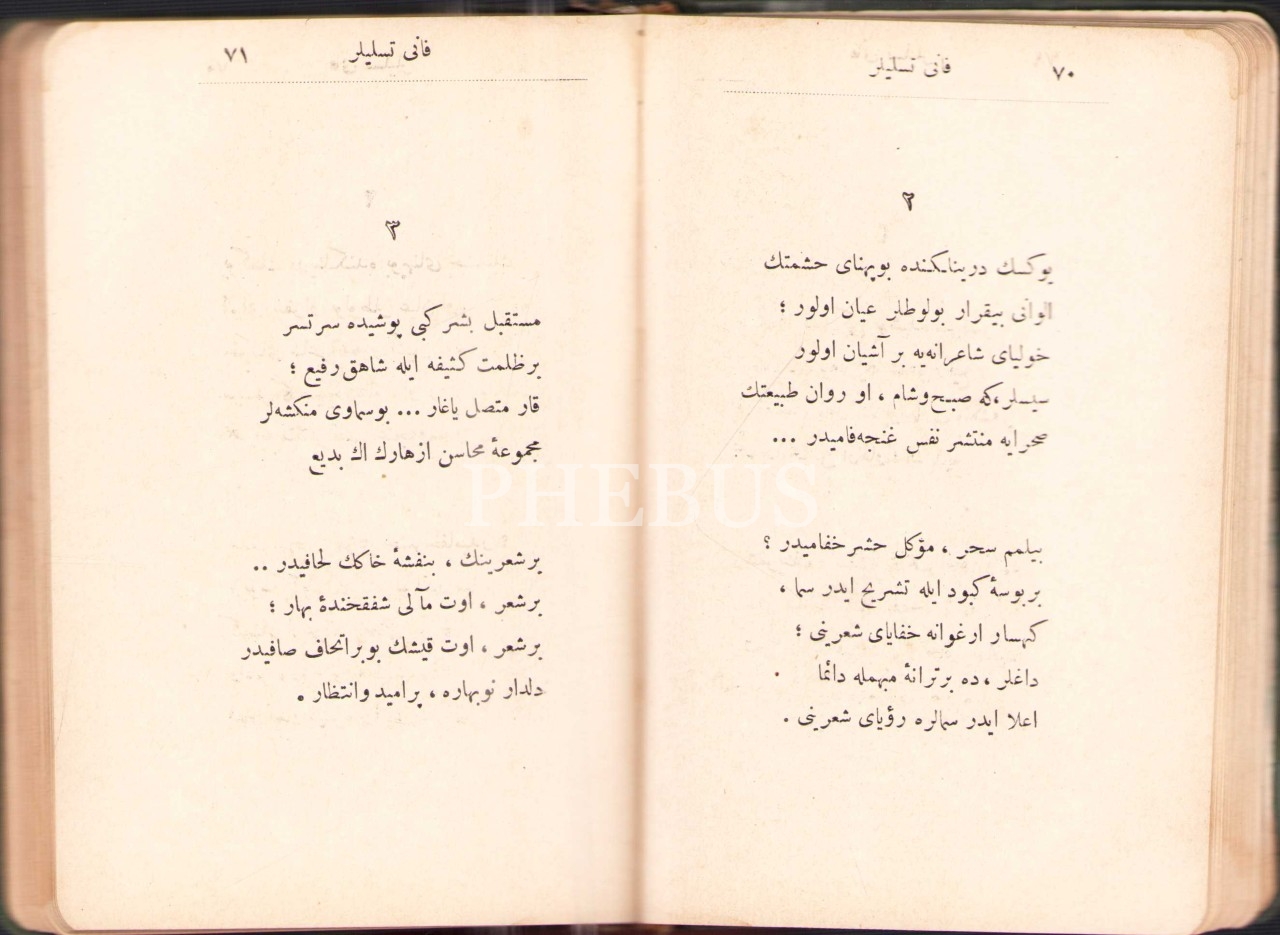 فانی تسلیلر
٧٠
٢
یوکسك دریناكنده بو پهنای حشمتك
الوانی بیقرار بولوطلر عیان اولور ؛
خولیای شاعرانه‌یه بر آشیان اولور
سیسلر، که صبح وشام ، او روان طبیعتك
صحرایه منتشر نفس غنجه‌فامیدر ...
بیلمم سحر ، مؤکل حشر خفامیدر ؟
بر بوسهٔ کبود ایله تشریح ایدر سما ،
کهسار ارغوانه خفایای شعرینی ؛
داغلر ، ده بر ترانهٔ مبهمله دائما
اعلا ایدر سمالره رؤیای شعرینی .
فانی تسلیلر
٧١
٣
مستقبل بشر کبی پوشیده سرتسر
بر ظلمت کثیفه ایله شاهق رفیع ؛
قار متصل یاغار ... بو سماوی منکشه‌لر
مجموعهٔ محاسن ازهارك اك بدیع
بر شعرینك ، بنفشهٔ خاکك لحافیدر ..
بر شعر ، اوت مآلی شفقخندهٔ بهار ؛
بر شعر ، اوت قیشك بو بر اتحاف صافیدر
دلدار نوبهاره ، پر امید وانتظار .
PHEBUS